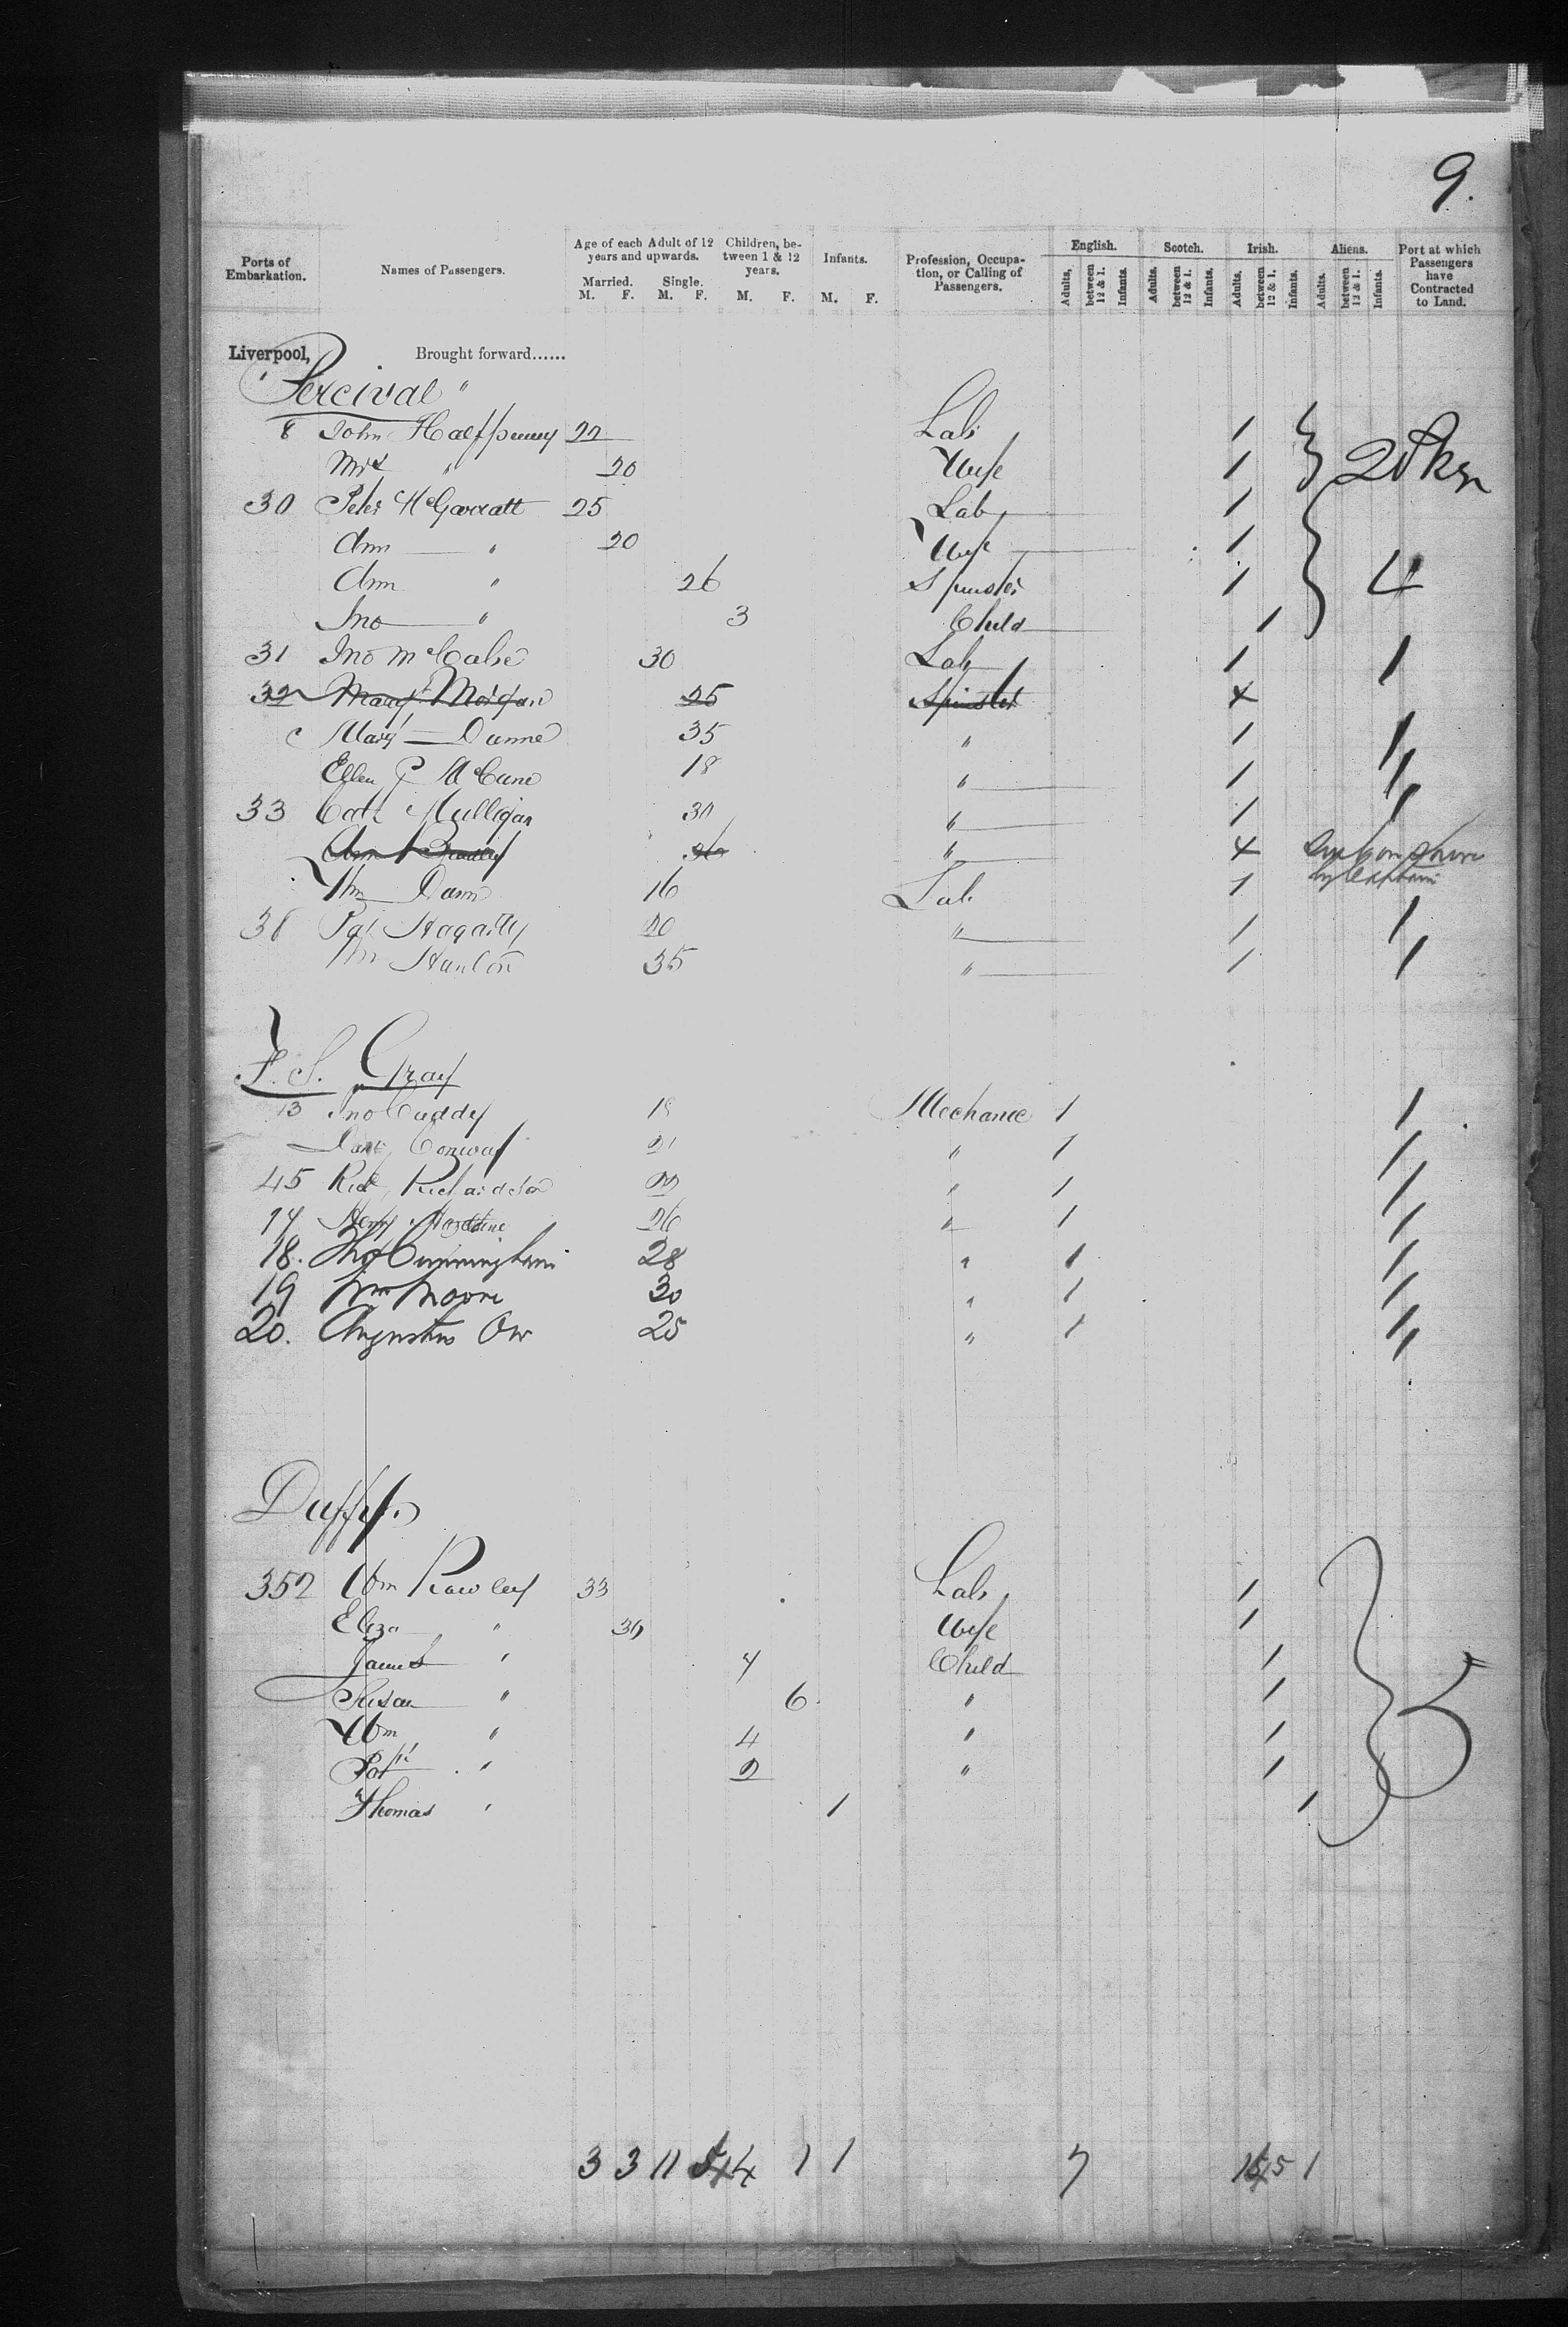 9.
Ports of Embarkation. Names of Passengers. Age of each Adult of 12 years and upwards. Married. M. F. Single. M. F. Children, between 1 & 12 years. M. F. Infants. M. F. Profession, Occupation, or Calling of Passengers. English. Adults, between 12 & 1. Infants. Scotch. Adults. between 12 & 1. Infants. Irish. Adults. between 12 & 1. Infants. Aliens. Adults. between 12 & 1. Infants. Port at which Passengers have Contracted to Land.
Liverpool, Brought forward......
"Percival"
8 John Halfpenny 22 Lab 1
Mrs " 20 Wife 1
30 Peter McGarratt 25 Lab 1
Ann " 20 Wife 1
Ann " 26 Spinster 1 4
Jno " 3 Child 1
31 Jno McCabe 30 Lab 1 1
32 Mary Morgan 25 Spinster
Mary Dunne 35 " 1 1
Ellen McCune 18 " 1 1
33 Cath Mulligan 30 " 1 1
Ann 26 "
by Captain
Wm Dunn 16 Lab 1
38 Pat Hagarty 20 " 1 1
Hanlon 35 " 1 1
F. S. Gray
13 Jno Cuddy Mechanic 1 1
Conway 21 " 1 1
45 Richardson 22 " 1 1
17 Henry 26 " 1 1
18. Thos Cunningham 28 " 1 1
19 Wm Moore 30 " 1 1
20. Augustus Orr 25 " 1 1
Duffy.
352 Wm Rowley 33 Lab 1
Eliza " 30 Wife 1
James " 7 Child 1
Susan " 6 " 1
Wm " 4 " 1 5
Pat " 2 " 1
Thomas " 1 1
3 3 11 4 1 1 7 5 1